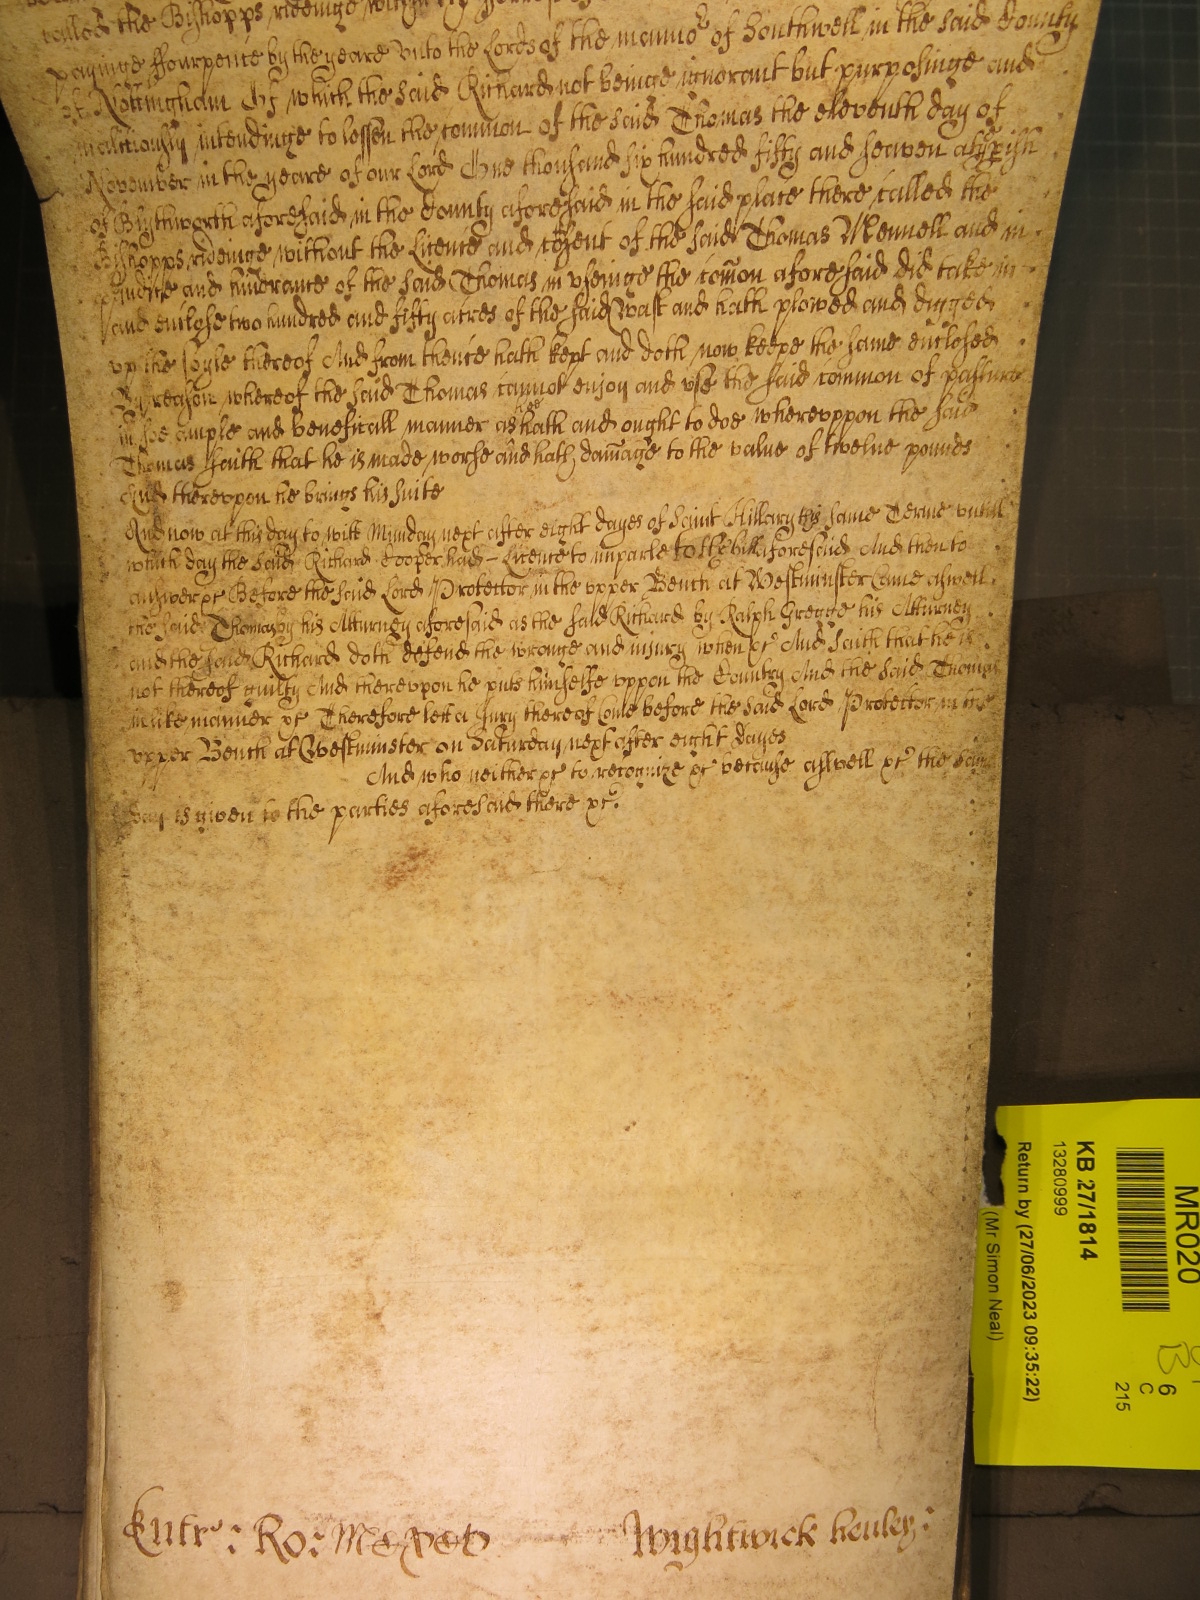 called the Bishopps rideinge
payinge ffourpence by the yeare vnto the Lords of the manno:r of Southwell in the said County
of Nottingham Of which the said Richard not beinge ignorant but purposinge and
malitiously intendinge to lessen the common of the said Thomas the eleventh day of
November in the yeare of our Lord One thousand six hundred fifty and seaven at the parish
of Blythworth aforesaid in the County aforesaid in the said place there called the
Bishopps rideinge without the Licence and consent of the said Thomas Mennell and in
preiudice and hinderance of the said Thomas in vseinge the comon aforesaid did take in
and enclose two hundred and fifty acres of the said wast and hath plowed and digged
vp the soyle thereof And from thence hath kept and doth now keepe the same enclosed
By reason whereof the said Thomas cannot enjoy and vse the said common of pasture
in soe ample and beneficall manner as hee hath and ought to doe wherevppon the said
Thomas saith that he is made worse and hath damage to the value of twelue pounds
And therevpon he brings his suite
And now at this day to witt Munday next after eight dayes of Saint Hillary this same Terme vntill
which day the said Richard Cooper had Licence to imparle to the bill aforesaid And then to
answer &c Before the said Lord Protector in the vpper Bench at Westminster Came aswell
the said Thomas by his Atturney aforesaid as the said Richard by Ralph Gregge his Atturney
and the said Richard doth defend the wronge and iniury when &c And saith that he is
not thereof guilty And therevpon he puts himselfe vppon the Country And the said Thomas
in like manner &c Therefore lett a Jury thereof Come before the said Lord Protector in the
vpper Bench at Westminster on Saturday next after eight dayes
And who neither &c to recognize &c because aswell &c the same
day is given to the parties aforesaid there &c.
Entr: Ro:
Wightwick henley:
MR020
KB 27/1814
13280999
Return by (27/06/2023 09:35:22)
(Mr Simon Neal)
6
C
215